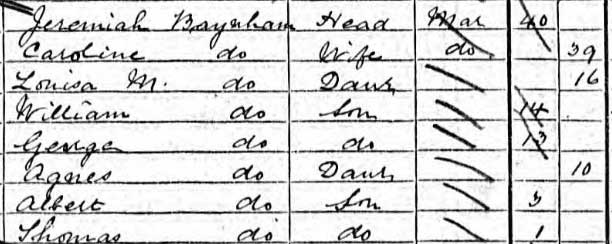 Jeremiah Baynham Head Mar 40
Caroline do Wife do 39
Louisa M. do Daur 16
William do Son 14
George do do 13
Agnes do Daur 10
Albert do Son 3
Thomas do do 1